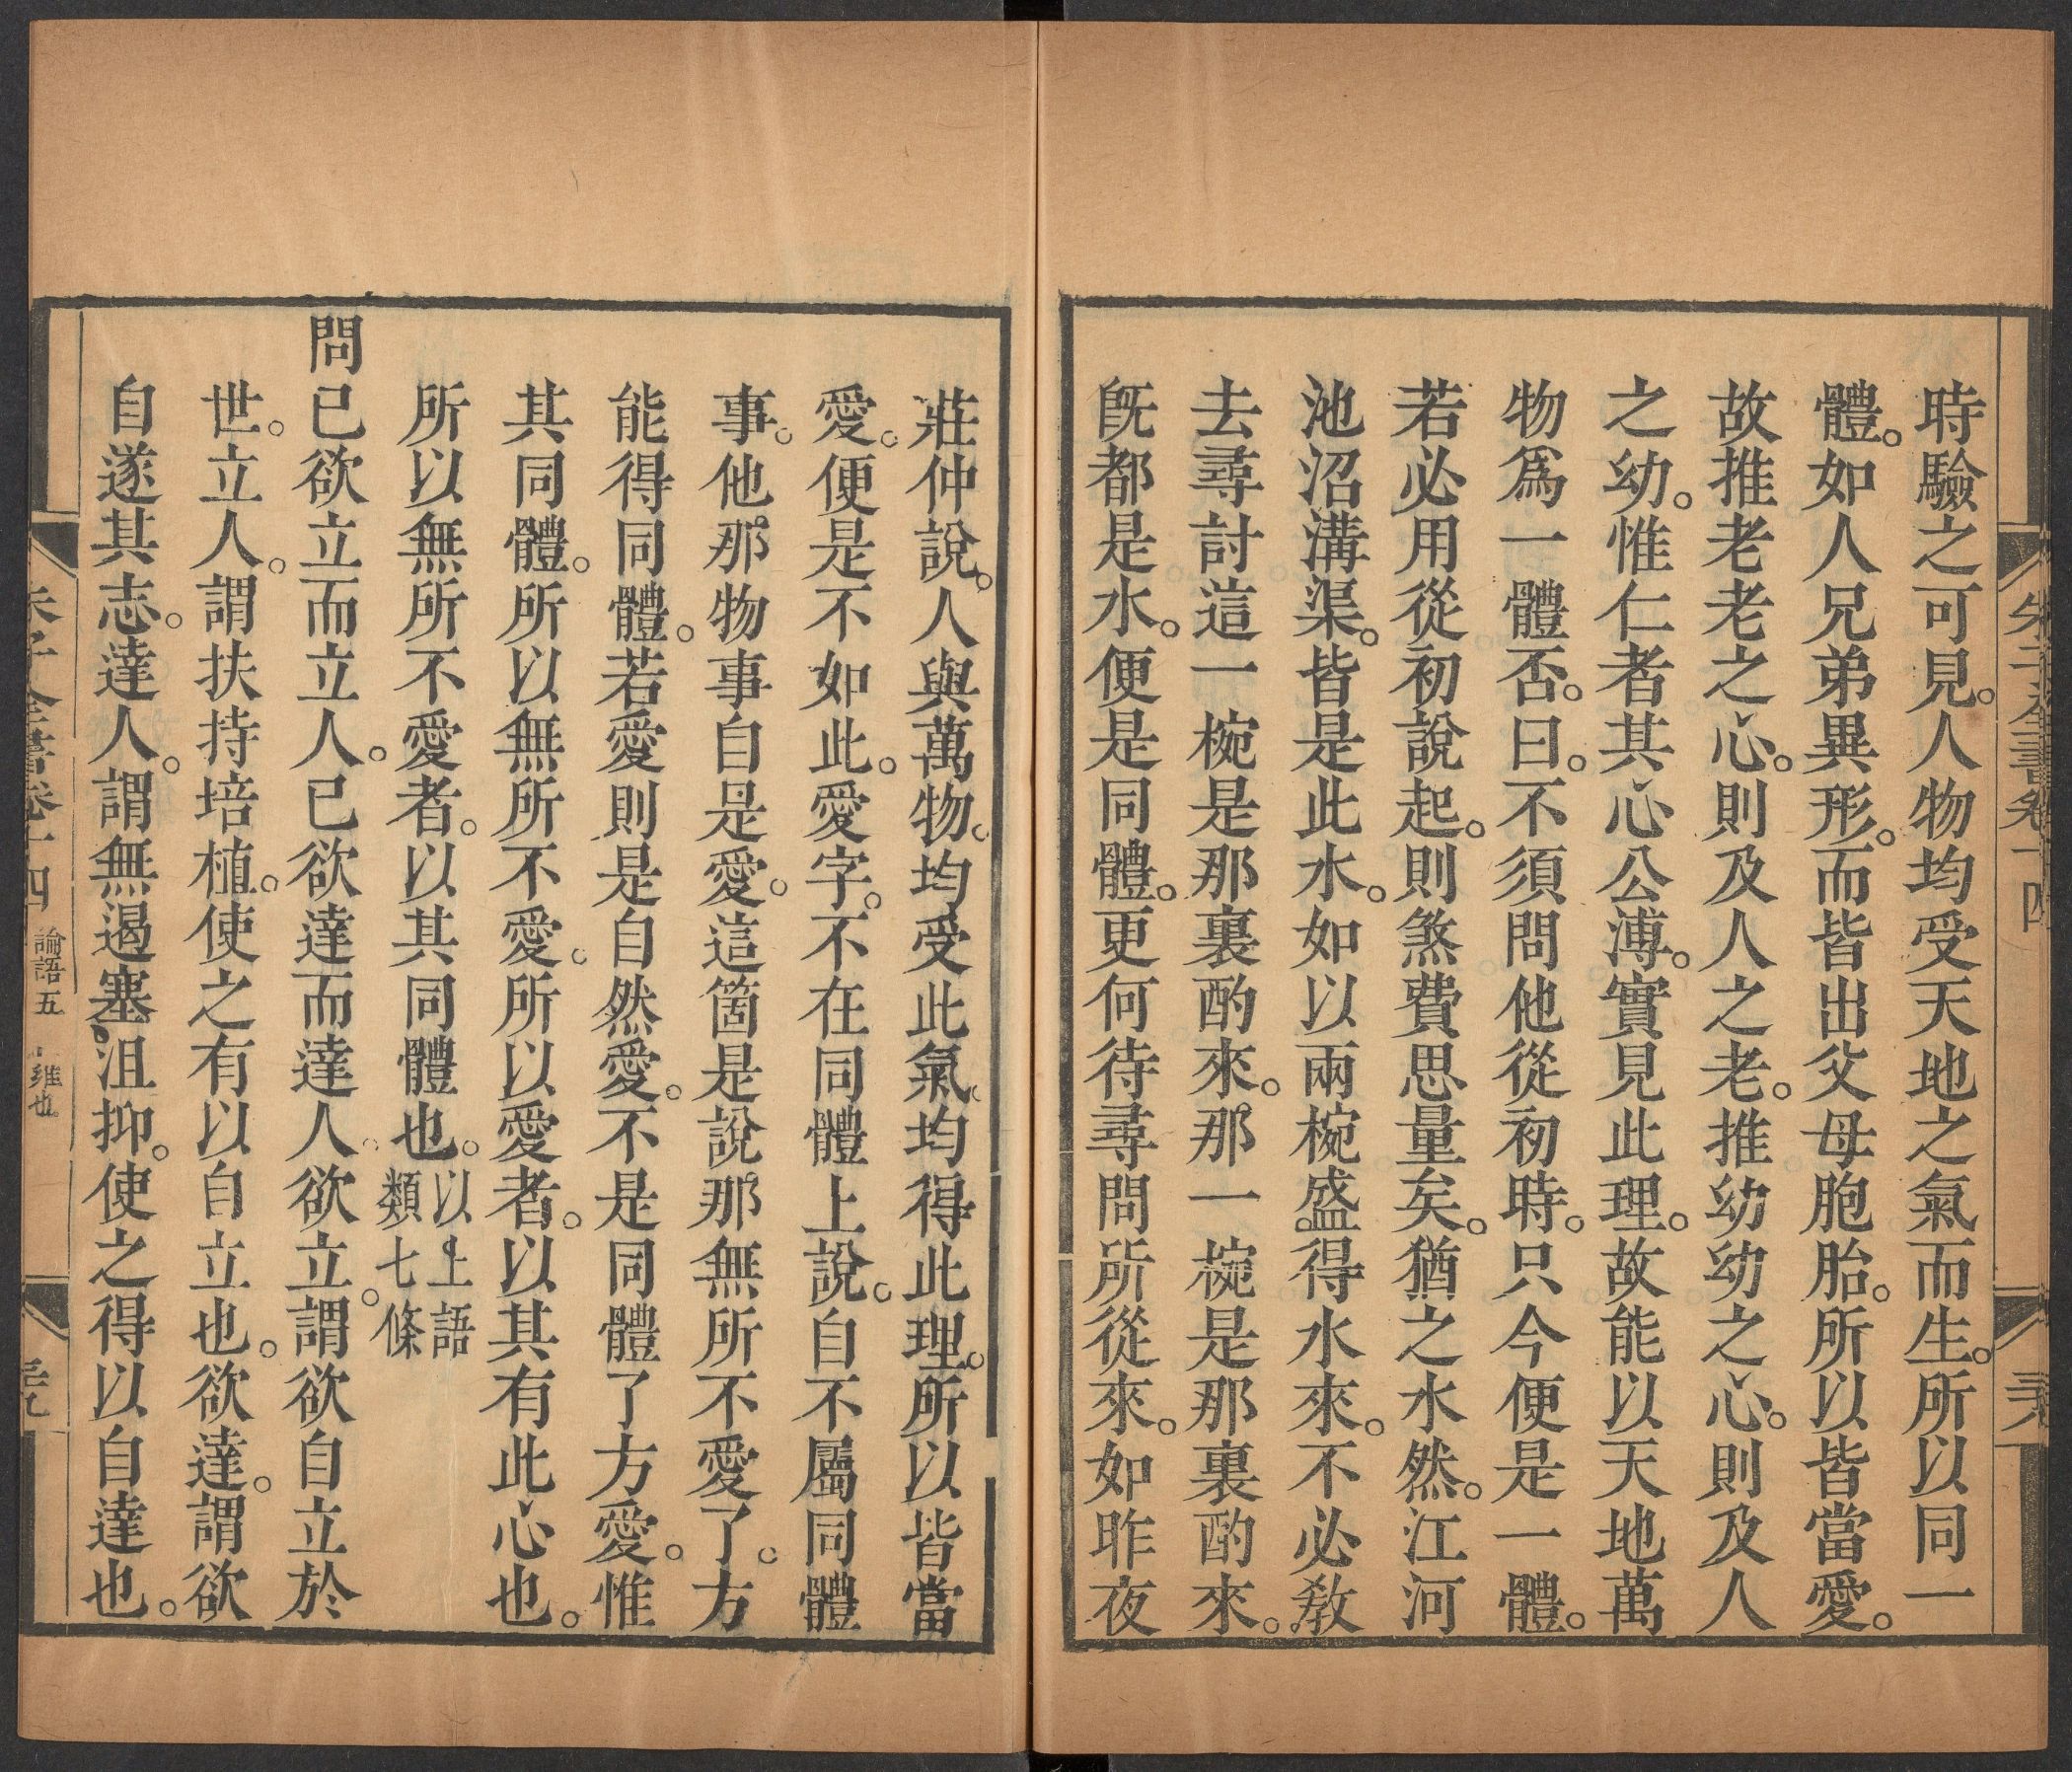 朱子全書卷十四
時驗之可見。人物均受天地之氣而生。所以同一
體。如人兄弟異形。而皆出父母胞胎。所以皆當愛。
故推老老之心。則及人之老。推幼幼之心。則及人
之幼。惟仁者其心公溥。實見此理。故能以天地萬
物爲一體否。曰。不須問他從初時。只今便是一體。
若必用從初說起。則煞費思量矣。猶之水然。江河
池沼溝渠。皆是此水。如以兩椀盛得水來。不必敎
去尋討這一椀是那裏酌來。那一椀是那裏酌來。
旣都是水。便是同體。更何待尋問所從來。如昨夜
莊仲說。人與萬物。均受此氣。均得此理。所以皆當
愛。便是不如此。愛字。不在同體上說。自不屬同體
事。他那物事自是愛。這箇是說那無所不愛了。方
能得同體。若愛則是自然愛。不是同體了方愛。惟
其同體。所以無所不愛。所以愛者。以其有此心也。
所以無所不愛者。以其同體也。以上語類七條
問己欲立而立人。己欲達而達人。欲立。謂欲自立於
世。立人。謂扶持培植。使之有以自立也。欲達。謂欲
自遂其志。達人。謂無遏塞沮抑。使之得以自達也。
朱子全書卷十四 論語五 雍也